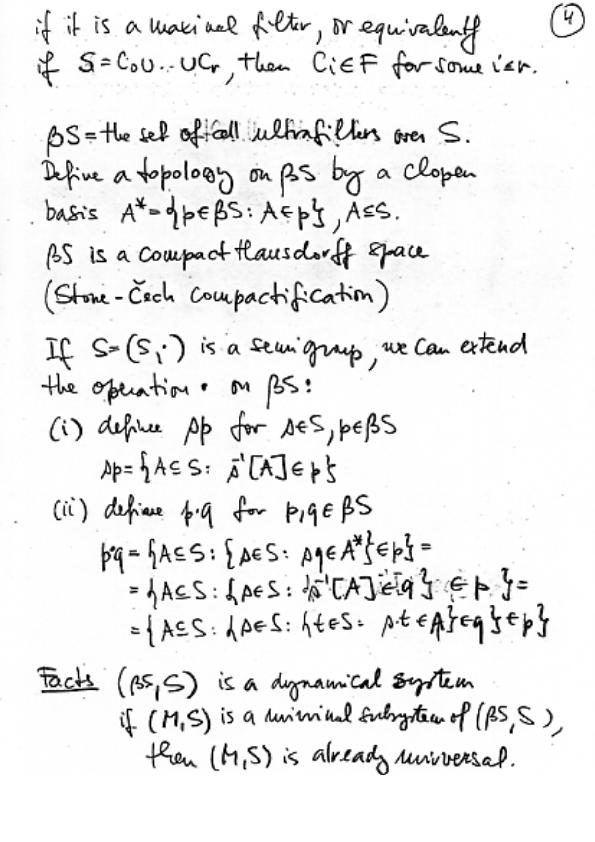 4
if it is a maximal filter, or equivalently
if S = C₀∪...∪Cᵣ, then Cᵢ∈F for some i≤r.
βS = the set of all ultrafilters over S.
Define a topology on βS by a clopen
basis A* = {p∈βS: A∈p}, A⊆S.
βS is a compact Hausdorff space
(Stone-Čech compactification)
If S=(S,·) is a semigroup, we can extend
the operation · on βS:
(i) define sp for s∈S, p∈βS
sp = {A⊆S: s⁻¹[A]∈p}
(ii) define p·q for p,q∈βS
p·q = {A⊆S: {s∈S: sq∈A*}∈p} =
= {A⊆S: {s∈S: s⁻¹[A]∈q} ∈ p} =
= {A⊆S: {s∈S: {t∈S: s·t∈A}∈q}∈p}
Facts (βS,S) is a dynamical system
if (M,S) is a minimal subsystem of (βS,S),
then (M,S) is already universal.